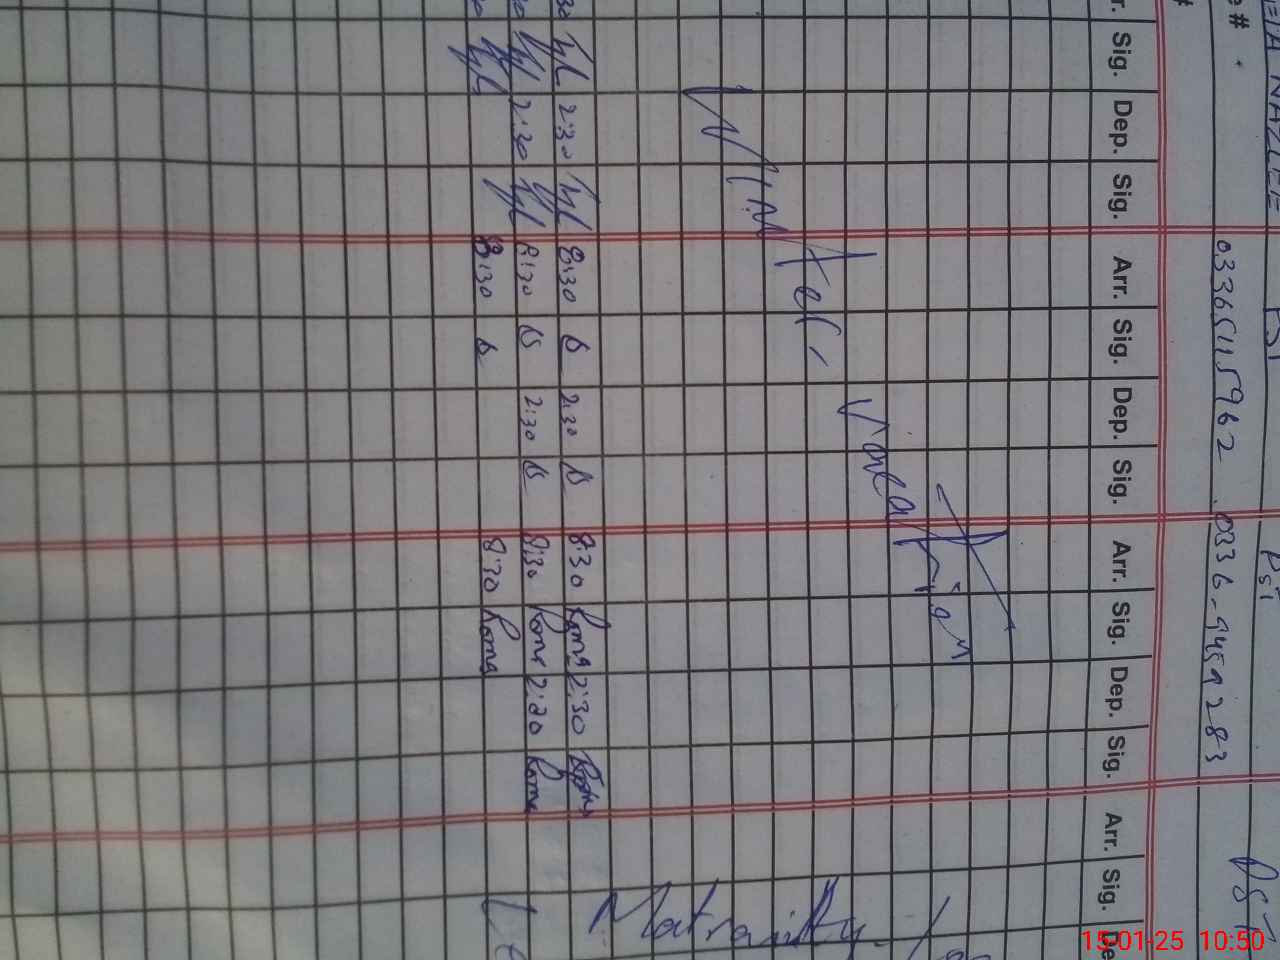 ETA NAZLEE PST Pst PST
e# . 03365115962 . 0336-9459283
#
r. Sig. Dep. Sig. Arr. Sig. Dep. Sig. Arr. Sig. Dep. Sig. Arr. Sig. De
Winter Vacation
Matranity
30 2:30 8:30 B 2:30 B 8:30 Roma 2:30 Roma
2:30 8:30 B 2:30 B 8:30 Roma 2:20 Roma
8:30 B 8:30 Roma
15-01-25 10:50